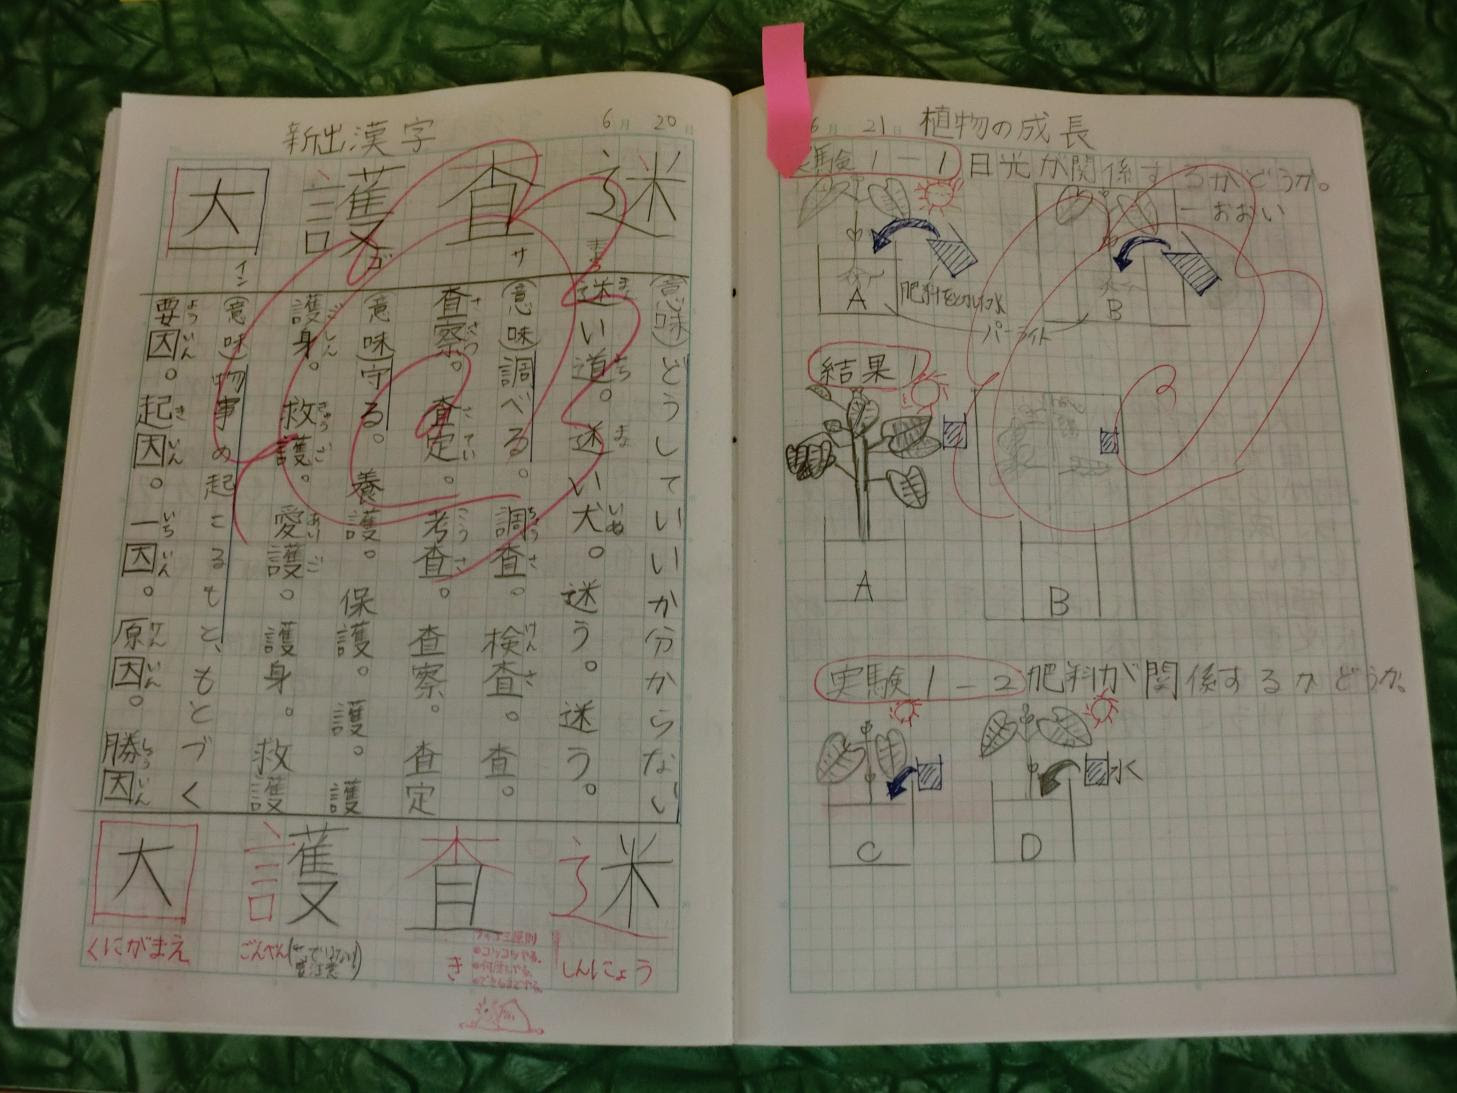 新出漢字
6月20日
迷
査
護
因
まよ
サ
ゴ
イン
(意味)どうしていいか分からない
迷い道。迷い犬。迷う。迷う。
(意味)調べる。調査。検査。査。
査察。査定。考査。査察。査定
(意味)守る。養護。保護。護。護
護身。救護。愛護。護身。救護
(意味)物事の起こるもと、もとづく
要因。起因。一因。原因。勝因
迷
査
護
因
しんにょう
き
ごんべん
くにがまえ
6月21日 植物の成長
実験1-1 日光が関係するかどうか。
おおい
A
B
パーライト
結果1
A
B
実験1-2 肥料が関係するかどうか。
水
C
D